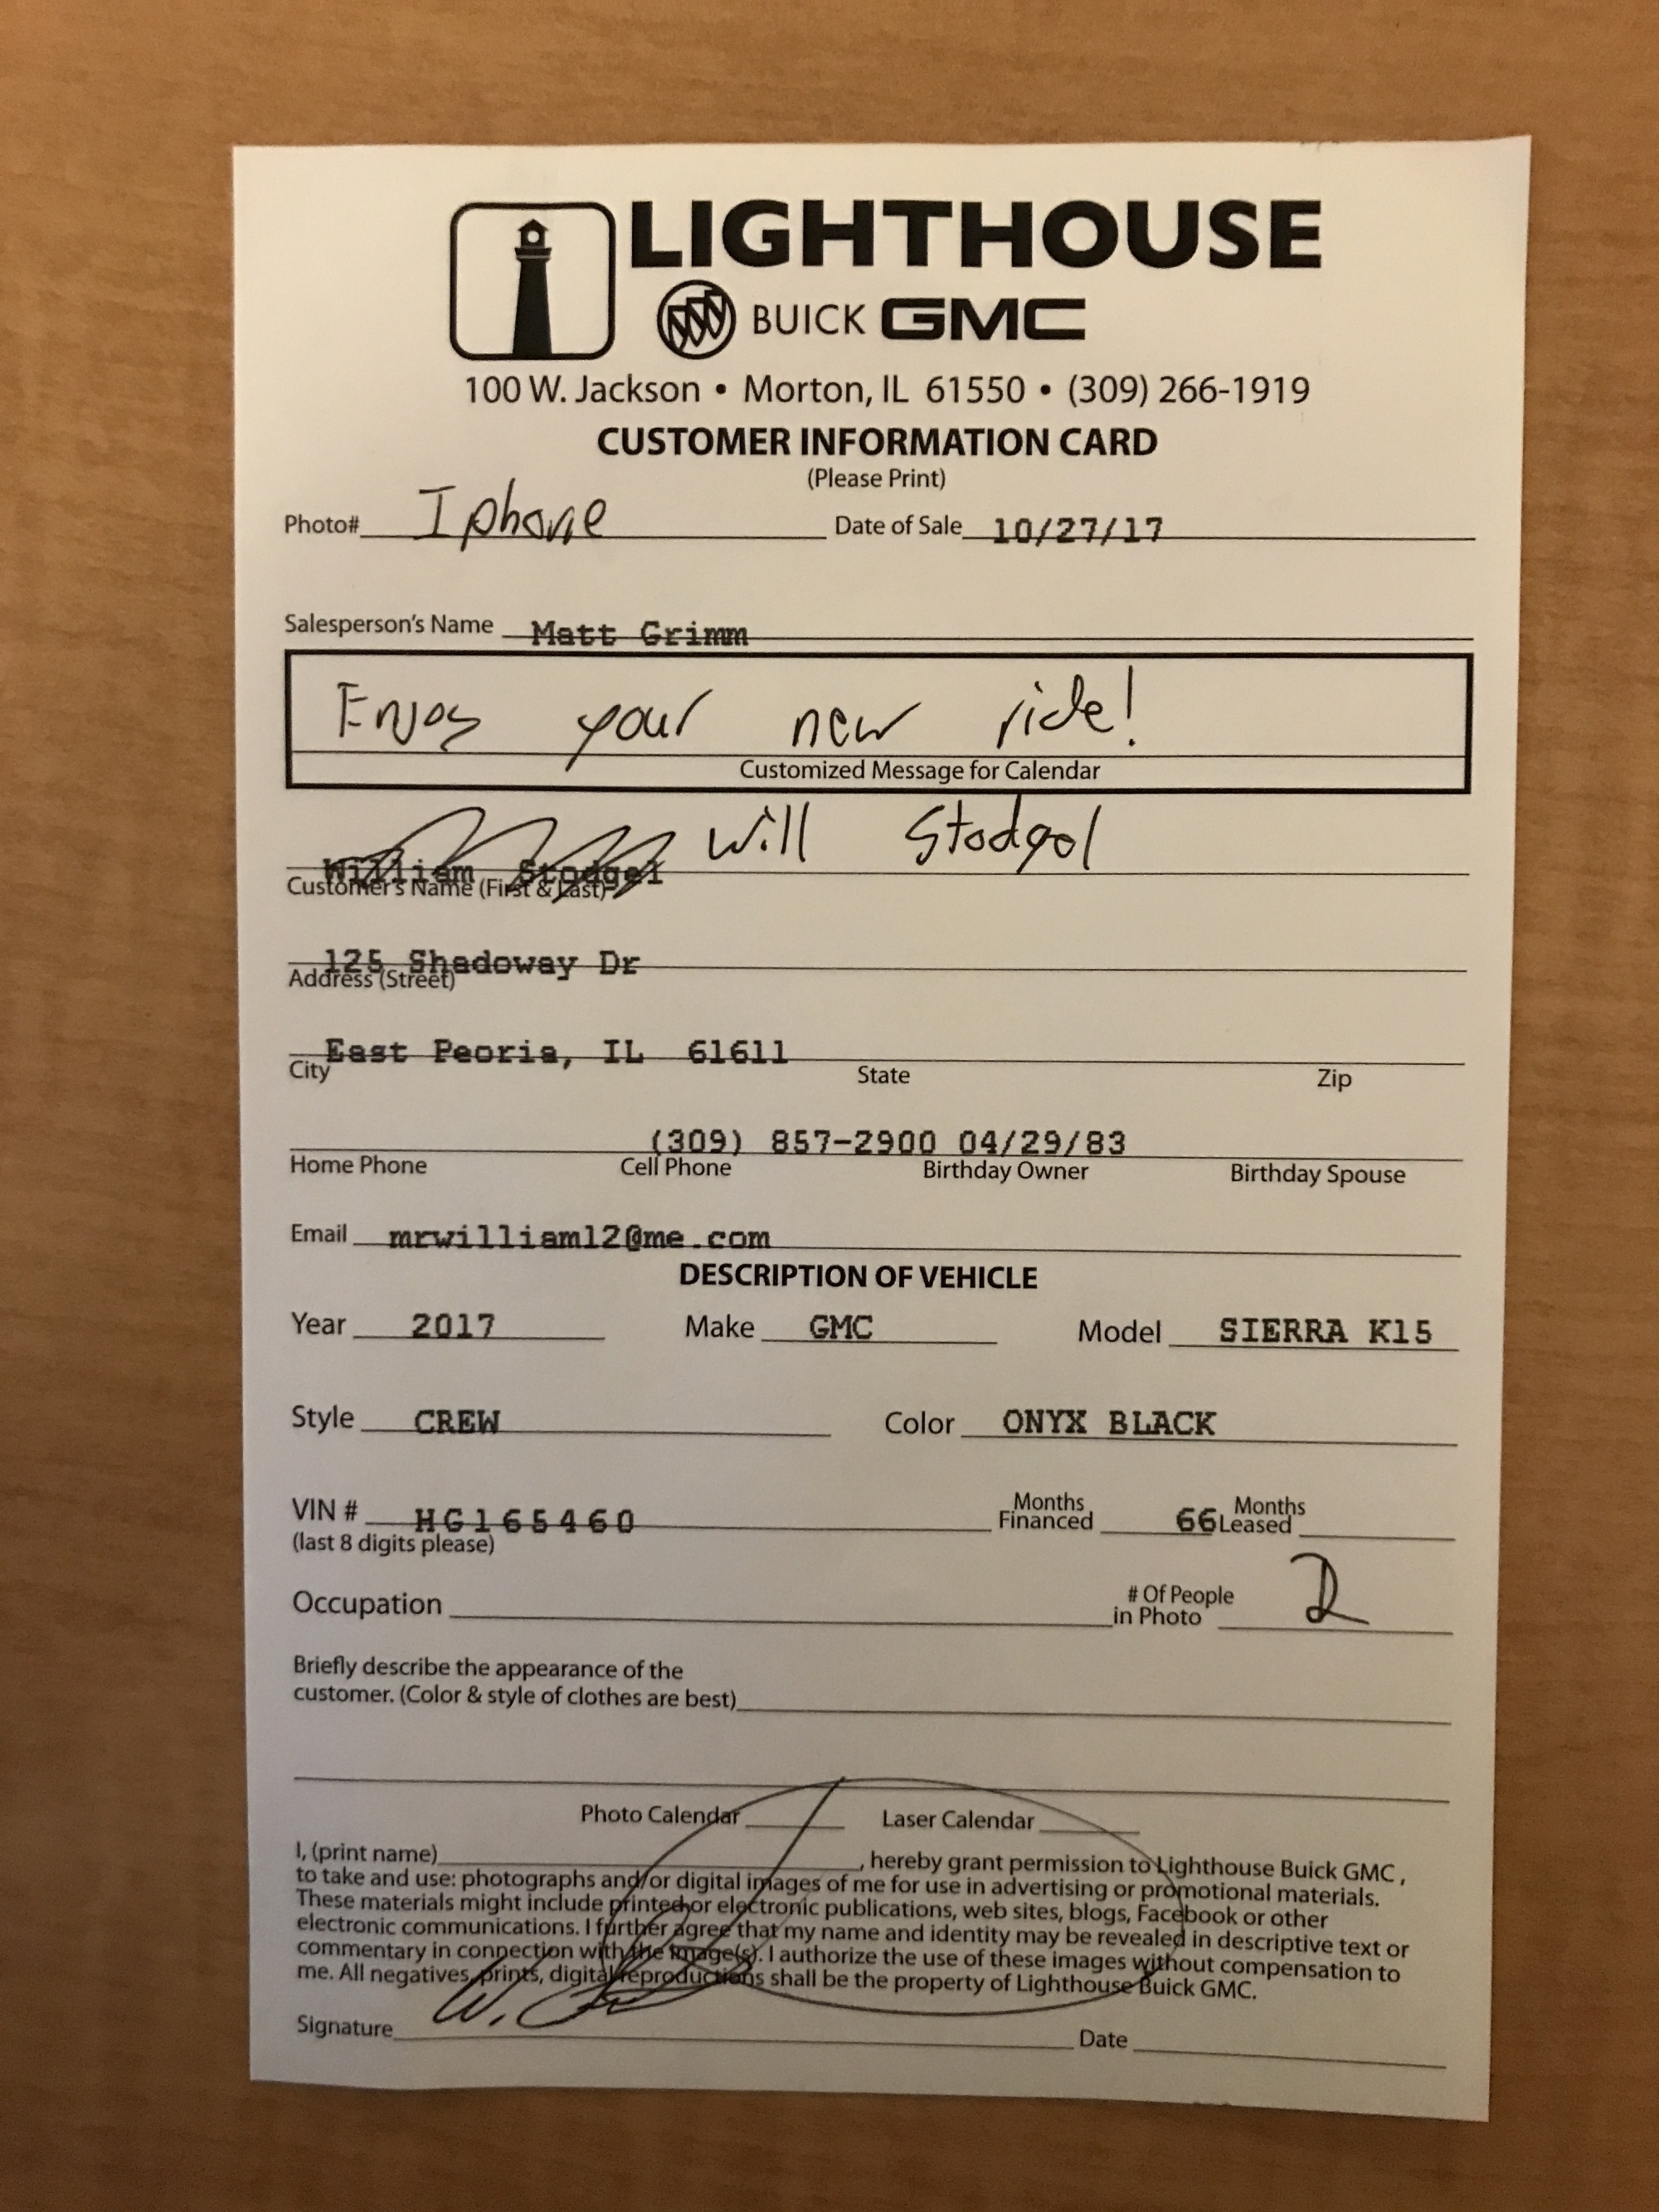 LIGHTHOUSE
BUICK GMC
100 W. Jackson • Morton, IL 61550 • (309) 266-1919
CUSTOMER INFORMATION CARD
(Please Print)
Photo# Iphone Date of Sale 10/27/17
Salesperson's Name Matt Grimm
Enjoy your new ride!
Customized Message for Calendar
William Stodgel Will Stodgel
Customer's Name (First & Last)
125 Shadoway Dr
Address (Street)
East Peoria, IL 61611
City State Zip
(309) 857-2900 04/29/83
Home Phone Cell Phone Birthday Owner Birthday Spouse
Email mrwilliam12@me.com
DESCRIPTION OF VEHICLE
Year 2017 Make GMC Model SIERRA K15
Style CREW Color ONYX BLACK
VIN # HG165460 Months Financed 66 Months Leased
(last 8 digits please)
Occupation # Of People in Photo 2
Briefly describe the appearance of the
customer. (Color & style of clothes are best)
Photo Calendar Laser Calendar
I, (print name) , hereby grant permission to Lighthouse Buick GMC ,
to take and use: photographs and/or digital images of me for use in advertising or promotional materials.
These materials might include printed or electronic publications, web sites, blogs, Facebook or other
electronic communications. I further agree that my name and identity may be revealed in descriptive text or
commentary in connection with the image(s). I authorize the use of these images without compensation to
me. All negatives, prints, digital reproductions shall be the property of Lighthouse Buick GMC.
Signature Date